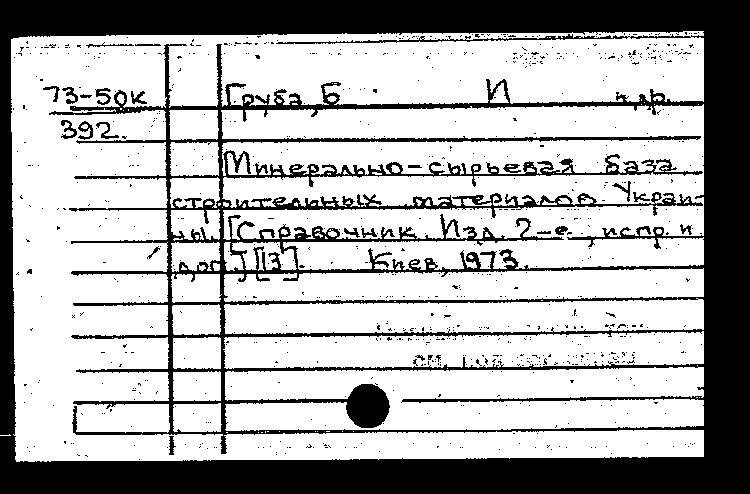 73-50к Груба, Б И и др.
392.
Минерально-сырьевая база
строительных материалов Украи-
ны. [Справочник. Изд. 2-е, испр. и
доп.] [13]. Киев, 1973.
см. под